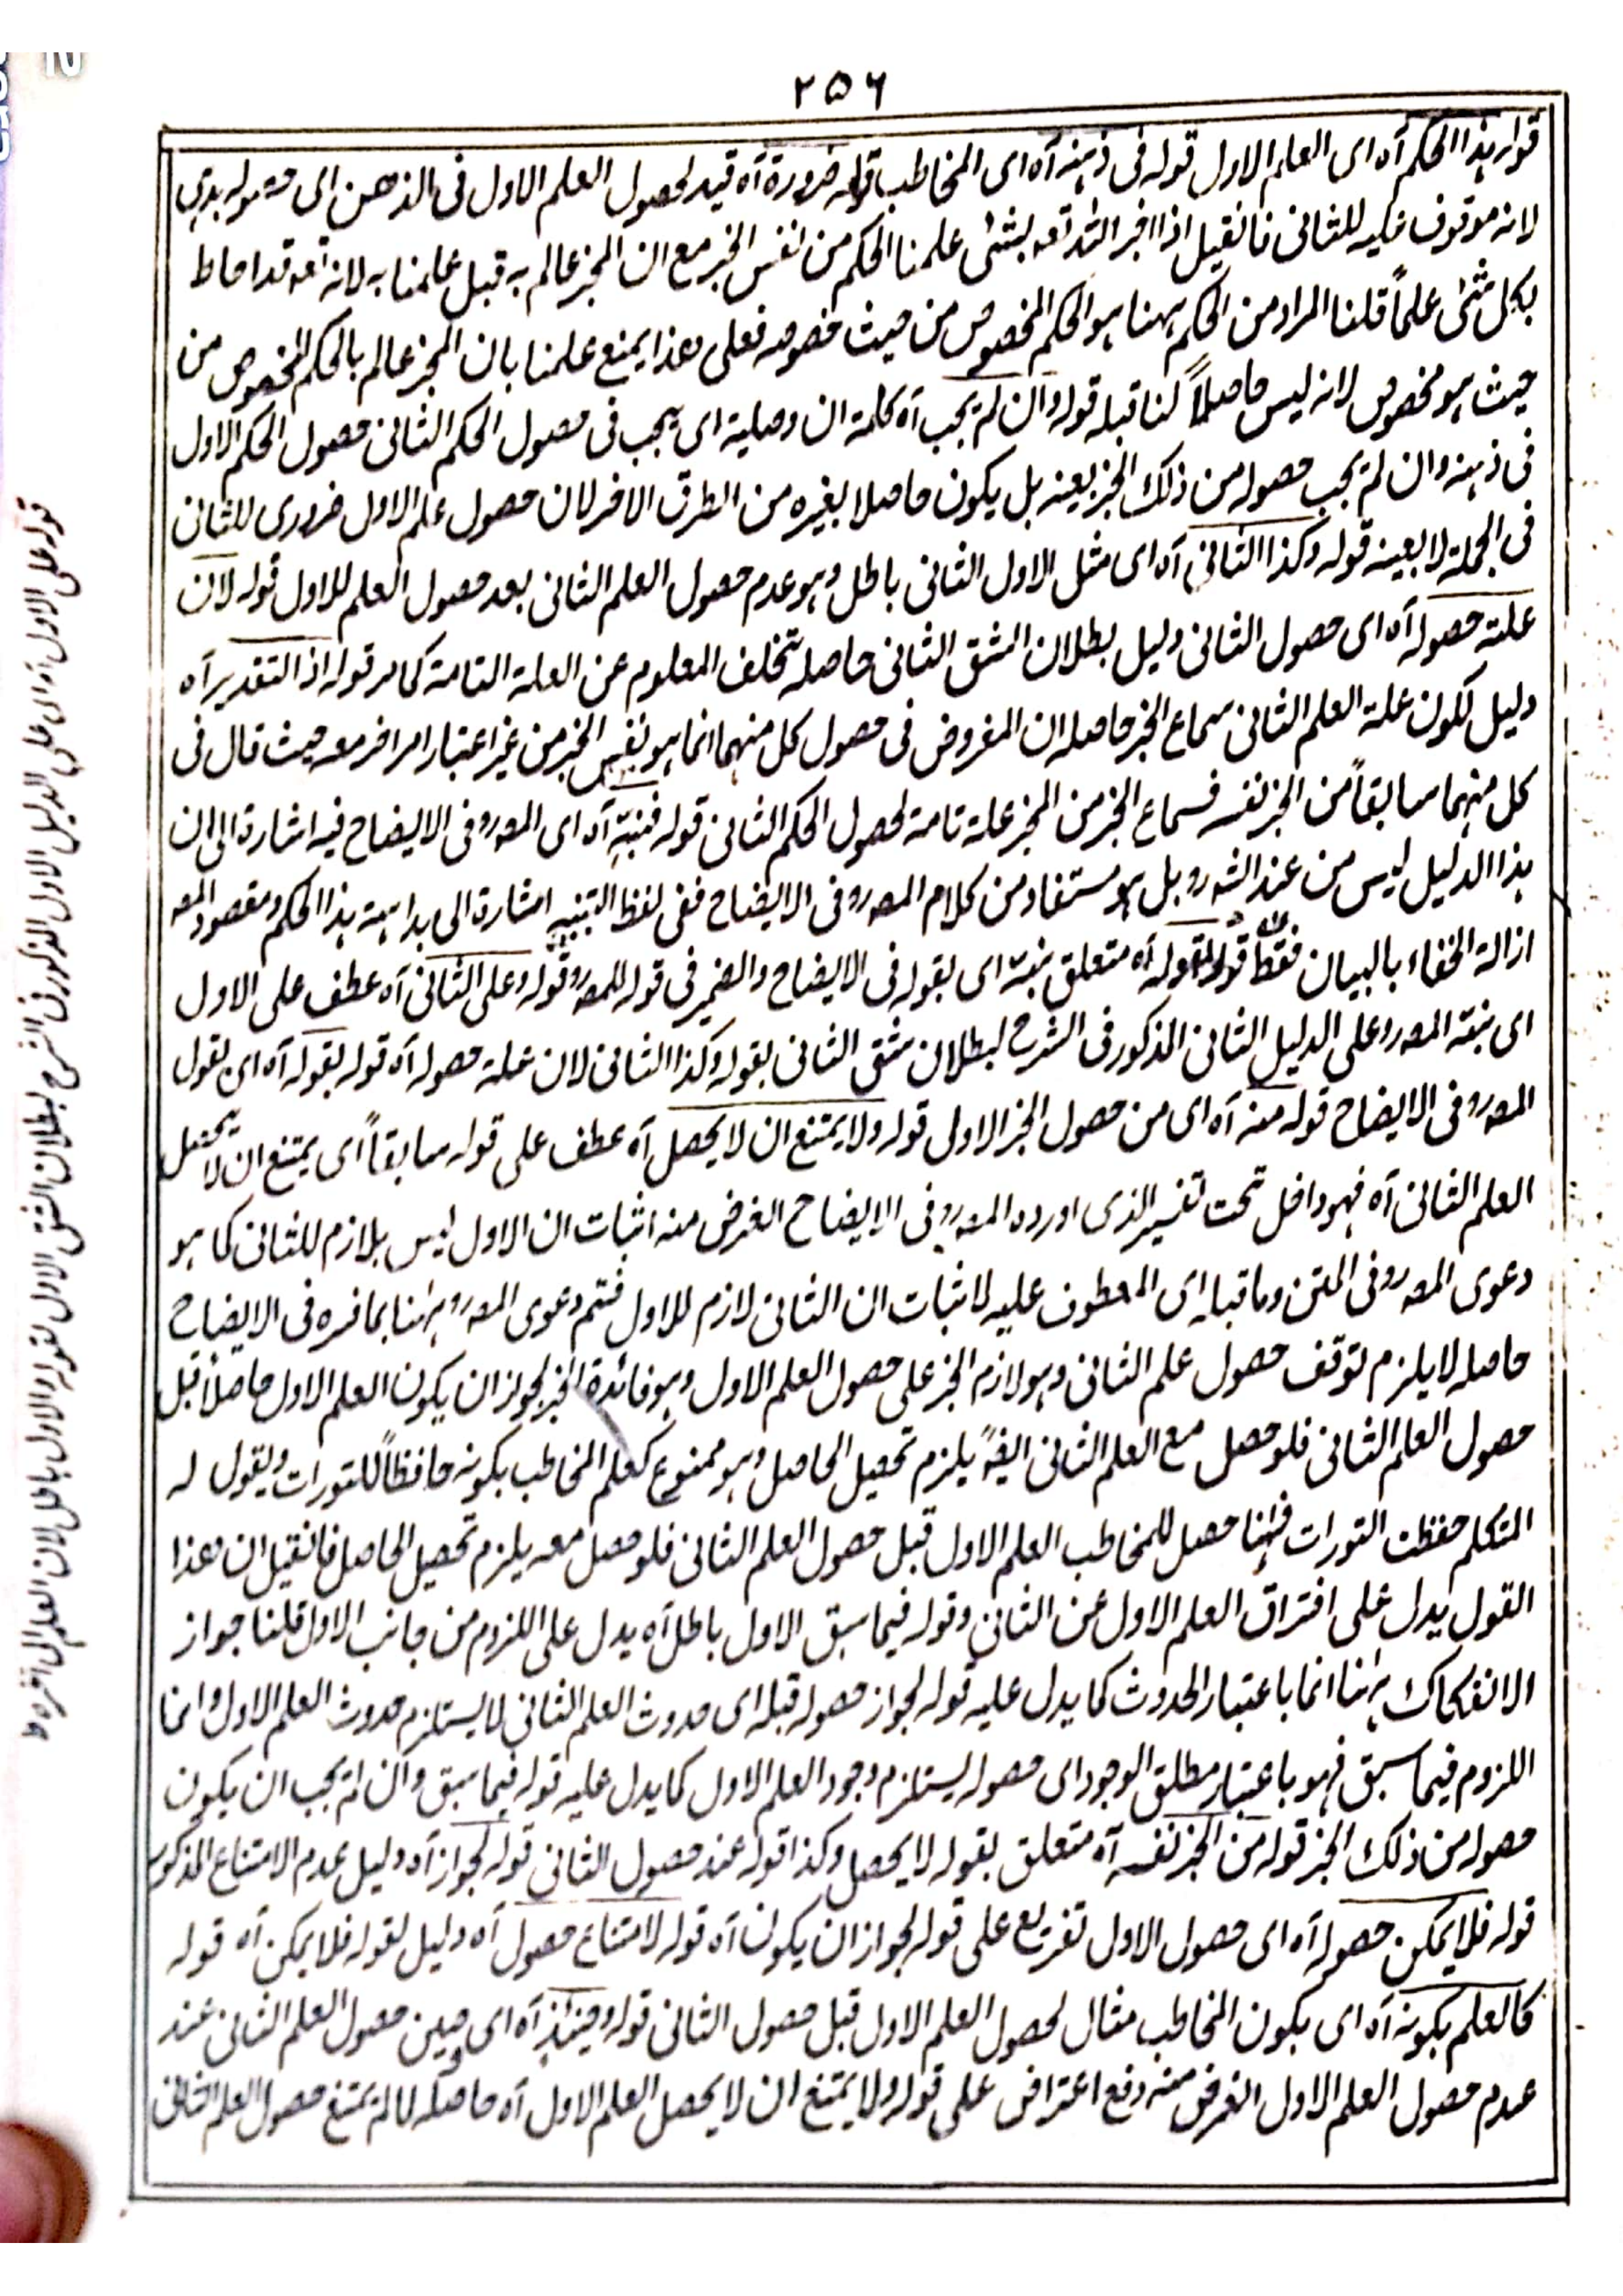 ٢٥٦
قوله هذا الحكم آه اى العلم الاول قوله فى ذهنه آه اى المخاطب قوله ضرورة آه قيد لحصول العلم الاول فى الذهن اى حصوله بديهى
لانه موقوف عليه للثانى فانقيل اذا اخبر الله تعه بشئى علمنا الحكم من نفس الخبر مع ان المخبر عالم به قبل علمنا به لانه تعه قد احاط
بكل شئى علماً قلنا المراد من الحكم ههنا هو الحكم المخصوص من حيث خصوصه فعلى هذا يمنع علمنا بان المخبر عالم بالحكم المخصوص من
حيث هو مخصوص لانه ليس حاصلاً لنا قبله قوله وان لم يجب آه كلمة ان وصلية اى يجب فى حصول الحكم الثانى حصول الحكم الاول
فى ذهنه وان لم يجب حصوله من ذلك الخبر بعينه بل يكون حاصلا بغيره من الطرق الاخر لان حصول علم الاول ضرورى للثانى
فى الجملة لا بعينه قوله وكذا الثانى آه اى مثل الاول الثانى باطل وهو عدم حصول العلم الثانى بعد حصول العلم للاول قوله لان
علته حصوله آه اى حصول الثانى دليل بطلان الشق الثانى حاصله تخلف المعلوم عن العلة التامة كما مر قوله اذ التقدير آه
دليل لكون علة العلم الثانى سماع الخبر حاصله ان المفروض فى حصول كل منهما انما هو نفس الخبر من غير اعتبار امر اخر معه حيث قال فى
كل منهما سابقاً من الخبر نفسه فسماع الخبر من المخبر علة تامة لحصول الحكم الثانى قوله فنبّه آه اى المصرو فى الايضاح فيه اشارة الى ان
هذا الدليل ليس من عند الشه رو بل هو مستفاد من كلام المصرو فى الايضاح ففى لفظ التنبيه اشارة الى بداهته هذا الحكم ومقصود المصه
ازالة الخفاء بالبيان فقط قوله بقوله آه متعلق بنبّه اى بقوله فى الايضاح والضمير فى قوله للمصرو قوله وعلى الثانى آه عطف على الاول
اى نبّه المصرو على الدليل الثانى المذكور فى الشرح لبطلان شق الثانى بقوله وكذا الثانى لان علة حصوله آه قوله بقوله آه اى بقول
المصرو فى الايضاح قوله منه آه اى من حصول الخبر الاول قوله ولا يمتنع ان لا يحصل آه عطف على قوله سابقاً اى يمتنع ان لا يحصل
العلم الثانى آه فهو داخل تحت تفسير الذى اورده المصرو فى الايضاح الغرض منه اثبات ان الاول ليس بلازم للثانى كما هو
دعوى المصرو فى المتن وما قبله اى المعطوف عليه لاثبات ان الثانى لازم للاول فتم دعوى المصرو ههنا بما فسره فى الايضاح
حاصله لا يلزم توقف حصول علم الثانى وهو لازم الخبر على حصول العلم الاول وهو فائدة الخبر لجواز ان يكون العلم الاول حاصلاً قبل
حصول العلم الثانى فلو حصل مع العلم الثانى ايضاً يلزم تحصيل الحاصل وهو ممنوع كعلم المخاطب بكونه حافظاً للتورات ويقول له
المتكلم حفظت التورات فههنا حصل للمخاطب العلم الاول قبل حصول العلم الثانى فلو حصل معه يلزم تحصيل الحاصل فانقيل ان هذا
القول يدل على افتراق العلم الاول عن الثانى وقوله فيما سبق الاول باطل آه يدل على اللزوم من جانب الاول قلنا جواز
الانفكاك ههنا انما باعتبار الحدوث كما يدل عليه قوله لجواز حصوله قبله اى حدوث العلم الثانى لا يستلزم حدوث العلم الاول وانما
اللزوم فيما سبق فهو باعتبار مطلق الوجود اى حصوله يستلزم وجود العلم الاول كما يدل عليه قوله فيما سبق وان لم يجب ان يكون
حصوله من ذلك الخبر قوله من الخبر نفسه آه متعلق بقوله لا يحصل وكذا قوله عند حصول الثانى قوله لجواز آه دليل عدم الامتناع المذكور
قوله فلا يمكن حصوله آه اى حصول الاول تفريع على قوله لجواز ان يكون آه قوله لامتناع حصول آه دليل لقوله فلا يمكن آه قوله
كالعلم بكونه آه اى بكون المخاطب مثال لحصول العلم الاول قبل حصول الثانى قوله وحينئذٍ آه اى حين حصول العلم الثانى عند
عدم حصول العلم الاول الغرض منه دفع اعتراض على قوله ولا يمتنع ان لا يحصل العلم الاول آه حاصله لما لم يمتنع حصول العلم الثانى